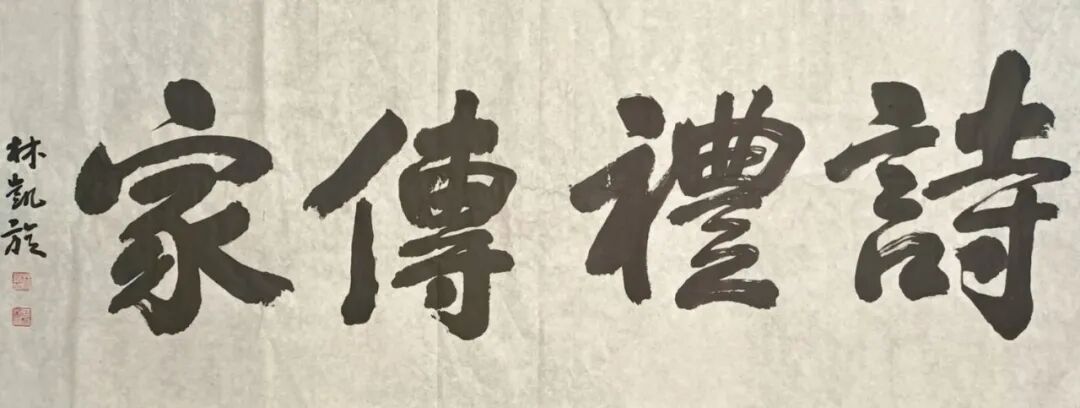 詩禮傳家
林凱旋